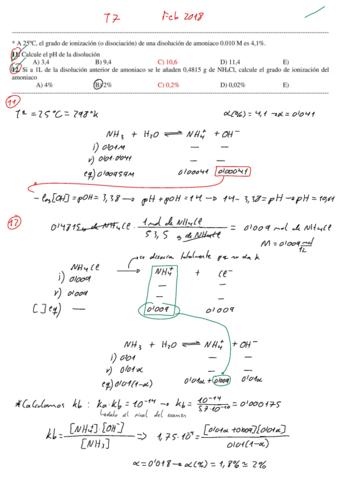 T7 Feb 2018
* A 25ºC, el grado de ionización (o disociación) de una disolución de amoniaco 0.010 M es 4,1%.
11. Calcule el pH de la disolución
A) 3,4 B) 9,4 C) 10,6 D) 11,4 E)
12. Si a 1L de la disolución anterior de amoniaco se le añaden 0,4815 g de NH₄Cl, calcule el grado de ionización del
amoniaco
A) 4% B) 2% C) 0,2% D) 0,02% E)
11
Tª = 25ºC = 298ºK α(%) = 4,1 → α = 0'041
NH₃ + H₂O ⇌ NH₄⁺ + OH⁻
i) 0'01M — —
r) 0'01·0'041 — —
eq) 0'00959M 0'00041 0'00041
- log[OH] = pOH = 3,38 → pH + pOH = 14 → 14 - 3,38 = pH → pH =
12
0'4815g de NH₄Cl · 1 mol de NH₄Cl / 53,5 g de NH₄Cl = 0'009 mol de NH₄Cl
M = 0'009 mol / 1L
se disocia totalmente que no da k
NH₄Cl → NH₄⁺ + Cl⁻
i) 0'009 — —
r) 0'009 — —
[ ] eq) — 0'009 0'009
NH₃ + H₂O ⇌ NH₄⁺ + OH⁻
i) 0'01 — —
r) 0'01α — —
eq) 0'01(1-α) 0'01α + 0'009 0'01α
* Calculamos kb: ka·kb = 10⁻¹⁴ → kb = 10⁻¹⁴ / 5'7·10⁻¹⁰ = 0'0000175
del examen
kb = [NH₄⁺]·[OH⁻] / [NH₃] ⇒ 1,75·10⁻⁵ = [0'01α + 0'009][0'01α] / 0'01(1-α)
α = 0'018 → α(%) = 1,8% ≈ 2%